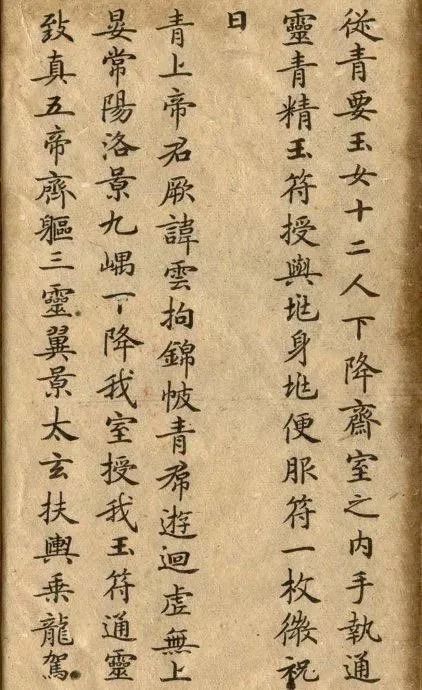 從青要玉女十二人下降齋室之內手執通
靈青精玉符授與垗身垗便服符一枚微祝
曰
青上帝君厥諱雲拘錦帔青帬遊迴虛無上
晏常陽洛景九嵎下降我室授我玉符通靈
致真五帝齊軀三靈翼景太玄扶輿乘龍駕